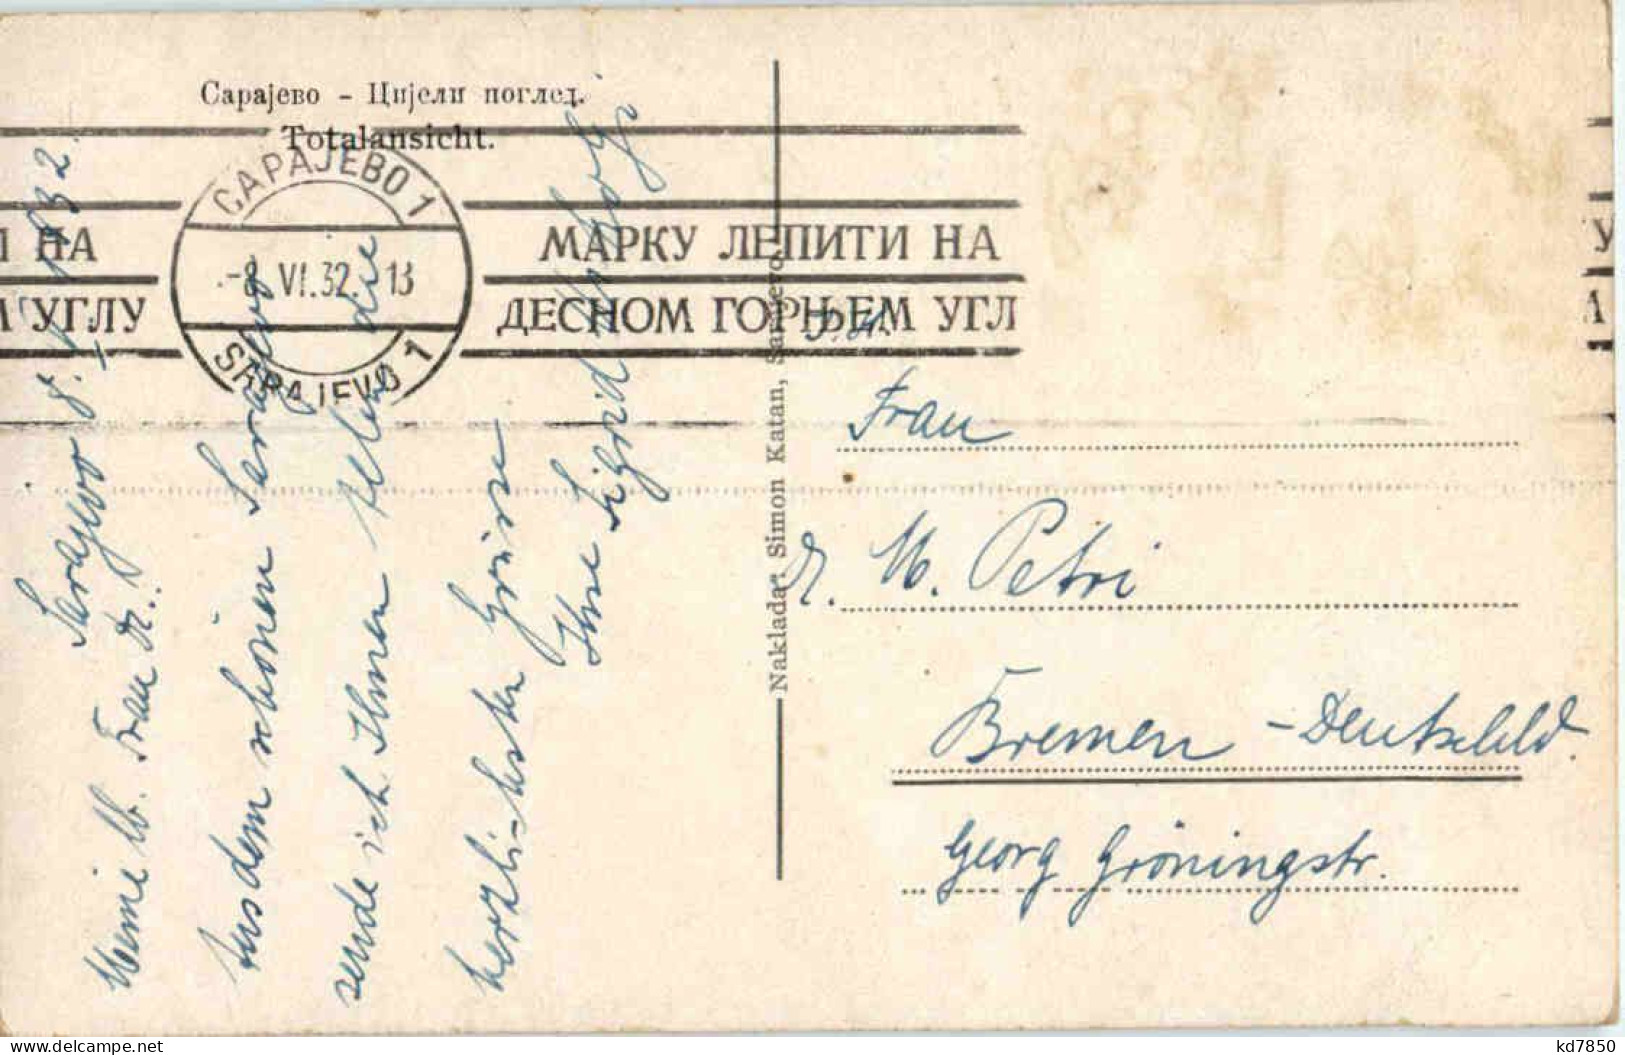 Сарајево – Цијели поглед.
Totalansicht.
САРАЈЕВО 1
-8. VI. 32. 13
SARAJEVO 1
НА
УГЛУ
МАРКУ ЛЕПИТИ НА
ДЕСНОМ ГОРЊЕМ УГЛ
Sarajevo 8. 1932.
Meine lb. Frau Dr.!
Aus dem schönen Sarajevo
sende ich Ihnen die
herzlichsten Grüsse
Ihre Sigrid
Naklada: Simon Katan, Sarajevo.
Frau
Dr. M. Petri
Bremen – Deutschld.
Georg Gröningstr.
kd7850